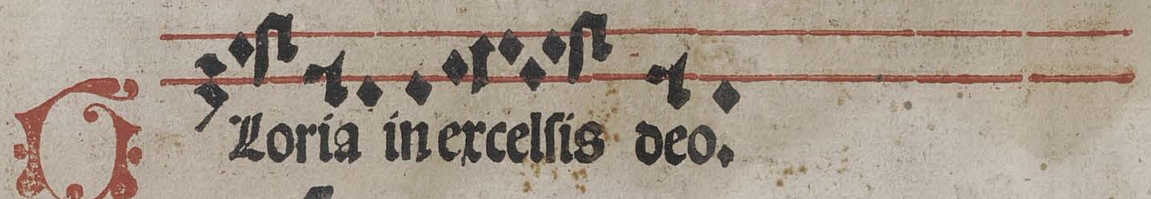 GLoria in excelſis deo.